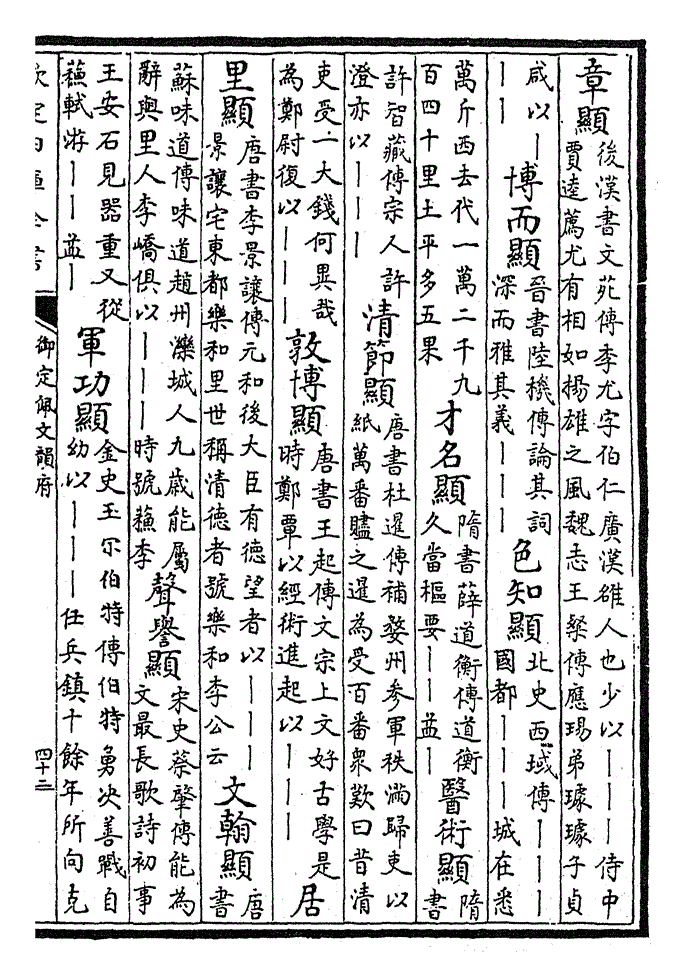 章顯
後漢書文苑傳李尤字伯仁廣漢雒人也少以｜｜｜侍中
賈逵薦尤有相如揚雄之風魏志王粲傳應瑒弟璩璩子貞
咸以｜
｜｜
博而顯
晉書陸機傳論其詞
深而雅其義｜｜｜
色知顯
北史西域傳｜｜｜
國都｜｜｜城在悉
萬斤西去代一萬二千九
百四十里土平多五果
才名顯
隋書薛道衡傳道衡
久當樞要｜｜益｜
醫術顯
隋
書
許智藏傳宗人許
澄亦以｜｜｜
清節顯
唐書杜暹傳補婺州參軍秩滿歸吏以
紙萬番贐之暹為受百番衆歎曰昔清
吏受一大錢何異哉
為鄭尉復以｜｜｜
敦博顯
唐書王起傳文宗上文好古學是
時鄭覃以經術進起以｜｜｜
居
里顯
唐書李景讓傳元和後大臣有德望者以｜｜｜
景讓宅東都樂和里世稱清德者號樂和李公云
文翰顯
唐
書
蘇味道傳味道趙州灤城人九歲能屬
辭與里人李嶠俱以｜｜｜時號蘇李
聲譽顯
宋史蔡肇傳能為
文最長歌詩初事
王安石見器重又從
蘇軾游｜｜益｜
軍功顯
金史玉尔伯特傳伯特勇決善戰自
幼以｜｜｜任兵鎮十餘年所向克
欽定四庫全書
御定佩文韻府
四十三